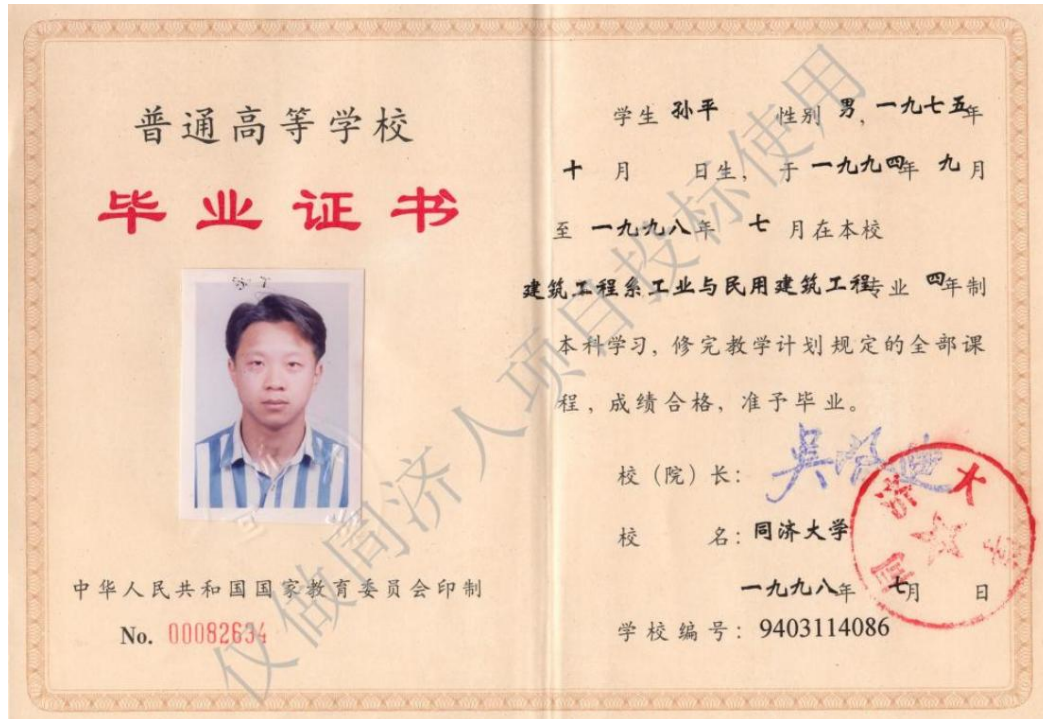 普通高等学校
毕业证书
中华人民共和国国家教育委员会印制
No. 00082634
学生 孙平 性别 男, 一九七五年
十 月 日生, 于 一九九四年 九月
至 一九九八年 七 月在本校
建筑工程系工业与民用建筑工程专业 四年制
本科学习, 修完教学计划规定的全部课
程, 成绩合格, 准予毕业。
校（院）长: 吴启迪
校 名: 同济大学
一九九八年 七月 日
学校编号: 9403114086
同济大学
仅做同济人项目投标使用